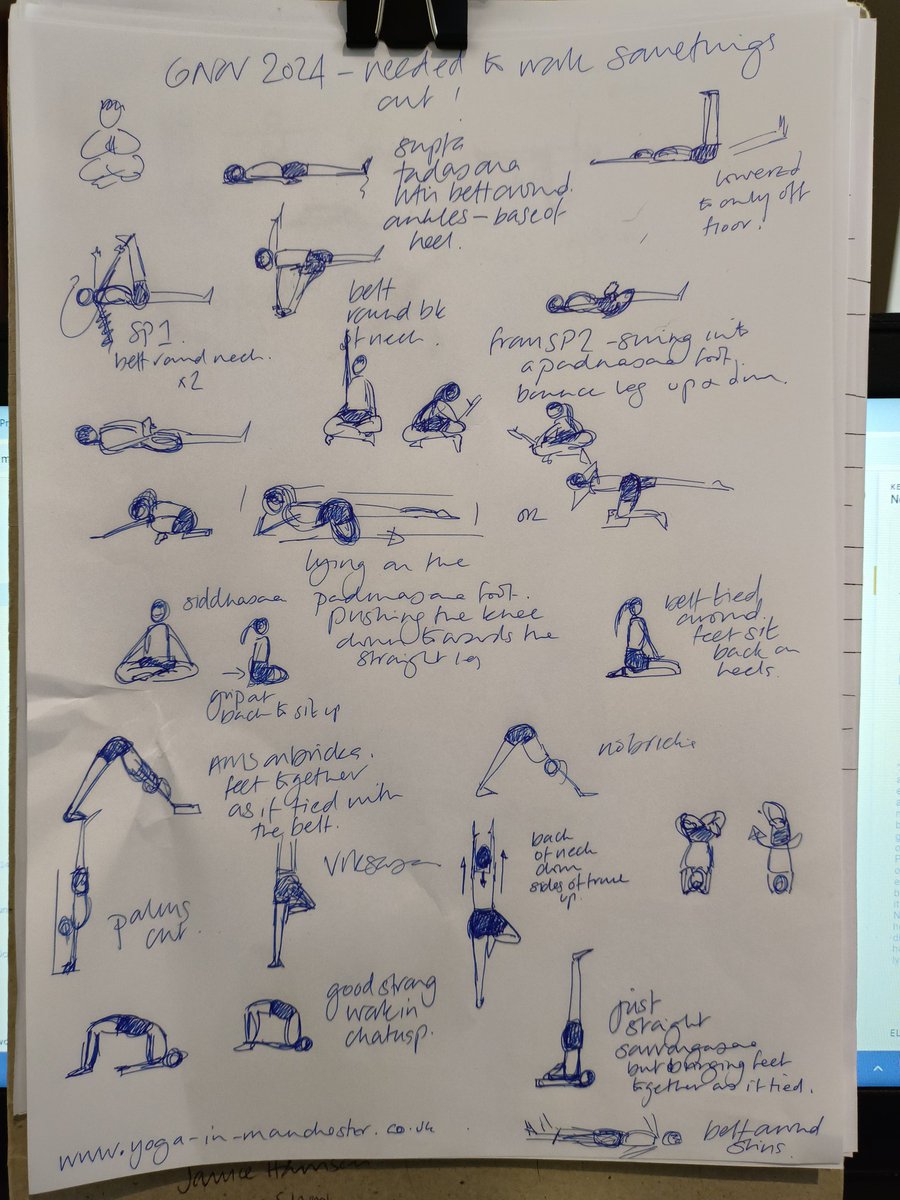 2024 - needed to work somethings
out!
supta
tadasana
with belt around
ankles - base of
heel.
lowered
to only off
floor!
SP1.
belt round neck.
x2
belt
round bk
of neck.
from SP2 - swing into
a padmasana foot.
bounce leg up & down.
or
lying on the
padmasana foot.
pushing the knee
down towards the
straight leg
siddhasana
grip at
back to sit up
belt tied
around
feet sit
back on
heels.
AMS on bricks.
feet together
as if tied with
the belt.
no bricks
palms
out.
Vrksasana
back
of neck
down
sides of trunk
up.
good strong
work in
chatusp.
just
straight
sarvangasana
but bringing feet
together as if tied.
belt around
shins.
www.yoga-in-manchester.co.uk
Janice